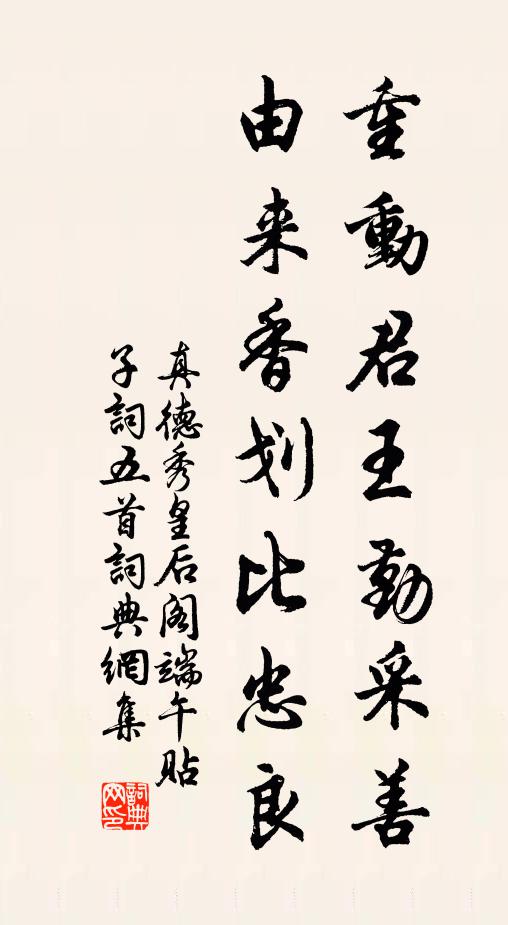 重動君王勤采善
由来香划比忠良
真德秀皇后阁端午貼
子詞五首詞典網集
詞典网印